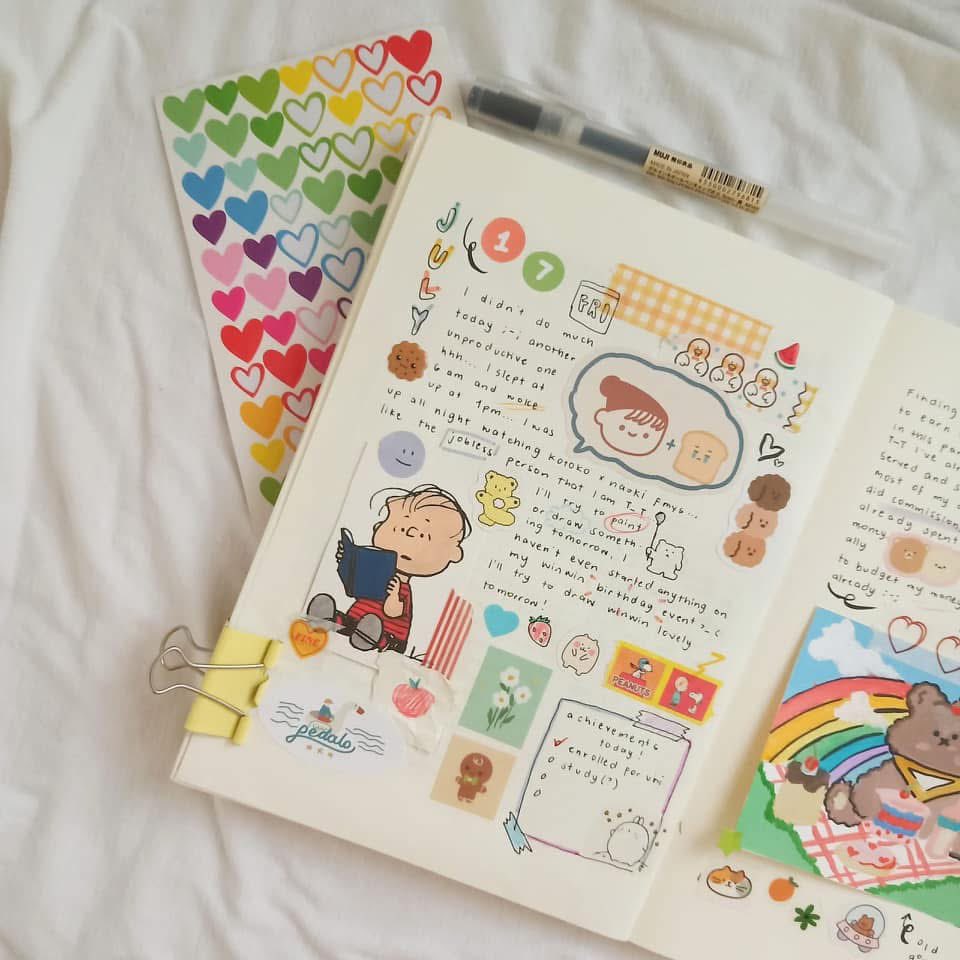 MUJ! 無印良品
MADE IN JAPAN
JULY
17
FRI
I didn't do much
today ;-; another
unproductive one
hhh... I slept at
6 am and woke
up at 1pm... I was
up all night watching kotoko x naoki fmvs...
like the jobless person that I am T_T
I'll try to paint
or draw someth-
ing tomorrow. I
haven't even started anything on
my winwin birthday event >_<
I'll try to draw winwin lovely
tomorrow!
+
PEANUTS
pedalo
achievements
today!
enrolled for uni
study(?)
Finding
to earn
in this pan
T-T I've al
served and s
most of my
did commission
already spent
money
ally
to budget my money
already ;-;
old